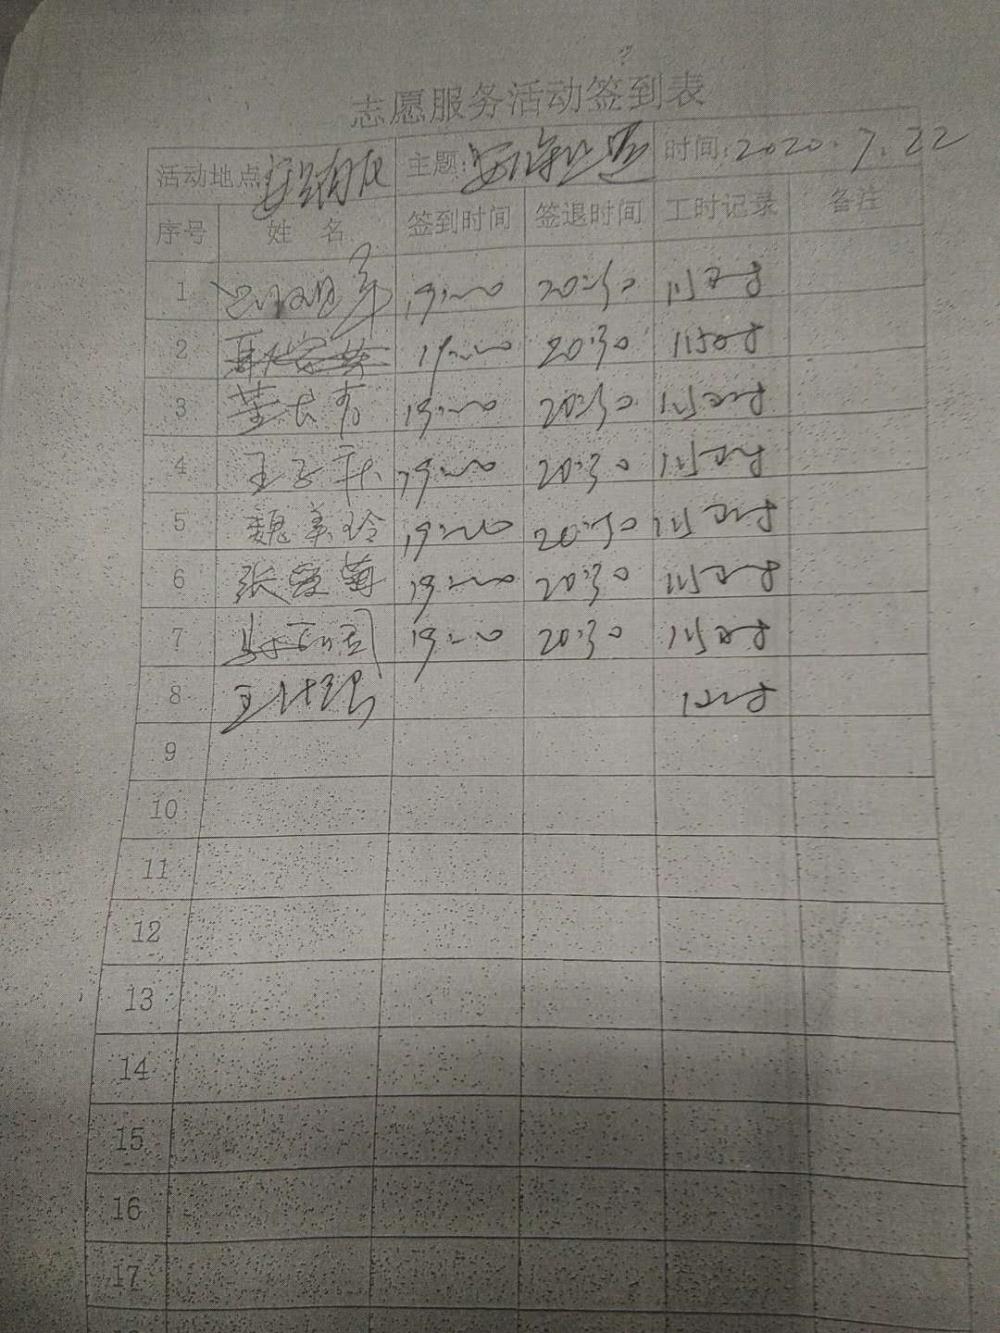 志愿服务活动签到表
活动地点: 主题: 时间:2020.7.22
序号 姓名 签到时间 签退时间 工时记录 备注
1 19:00 20:30 1.5小时
2 19:00 20:30 1.5小时
3 19:00 20:30 1.5小时
4 19:00 20:30 1.5小时
5 魏美玲 19:00 20:30 1.5小时
6 张爱菊 19:00 20:30 1.5小时
7 19:00 20:30 1.5小时
8 1小时
9
10
11
12
13
14
15
16
17